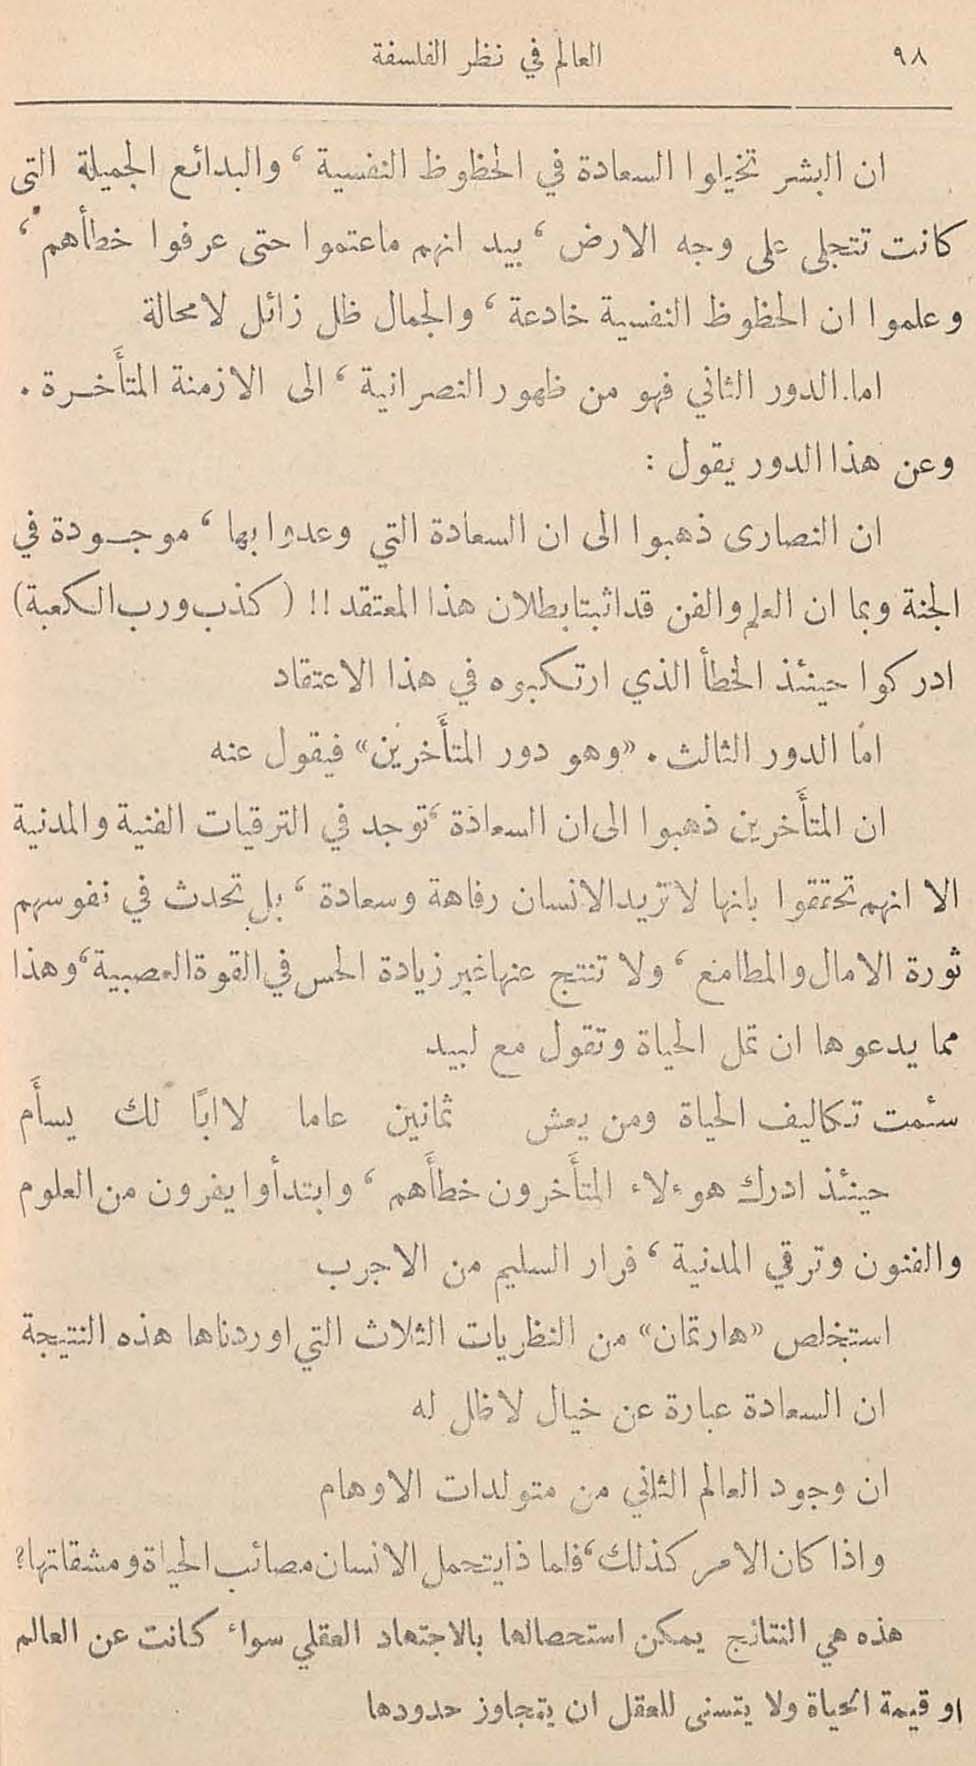 ٩٨ العالم في نظر الفلسفة
ان البشر تخيلوا السعادة في الحظوظ النفسية ، والبدائع الجميلة التي
كانت تتجلى على وجه الارض ، بيد انهم ماعتموا حتى عرفوا خطأهم ،
وعلموا ان الحظوظ النفسية خادعة ، والجمال ظل زائل لامحالة
اما الدور الثاني فهو من ظهور النصرانية ، الى الازمنة المتأخرة .
وعن هذا الدور يقول :
ان النصارى ذهبوا الى ان السعادة التي وعدوا بها ، موجودة في
الجنة وبما ان العلم والفن قد اثبتا بطلان هذا المعتقد !! ( كذب ورب الكعبة )
ادركوا حينئذ الخطأ الذي ارتكبوه في هذا الاعتقاد
امّا الدور الثالث . «وهو دور المتأخرين» فيقول عنه
ان المتأخرين ذهبوا الى ان السعادة ، توجد في الترقيات الفنية والمدنية
الا انهم تحققوا بانها لا تزيد الانسان رفاهة وسعادة ، بل تحدث في نفوسهم
ثورة الامال والمطامع ، ولا تنتج عنها غير زيادة الحس في القوة العصبية ، وهذا
مما يدعوها ان تمل الحياة وتقول مع لبيد
سئمت تكاليف الحياة ومن يعش ثمانين عاما لا ابًا لك يسأم
حينئذ ادرك هوءلاء المتأخرون خطأهم ، وابتدأوا يفرون من العلوم
والفنون وترقي المدنية ، فرار السليم من الاجرب
استخلص «هارتمان» من النظريات الثلاث التي اوردناها هذه النتيجة
ان السعادة عبارة عن خيال لا ظل له
ان وجود العالم الثاني من متولدات الاوهام
واذا كان الامر كذلك ، فلماذا يتحمل الانسان مصائب الحياة ومشقاتها؟
هذه هي النتائج يمكن استحصالها بالاجتهاد العقلي سواء كانت عن العالم
او قيمة الحياة ولا يتسنى للعقل ان يتجاوز حدودها